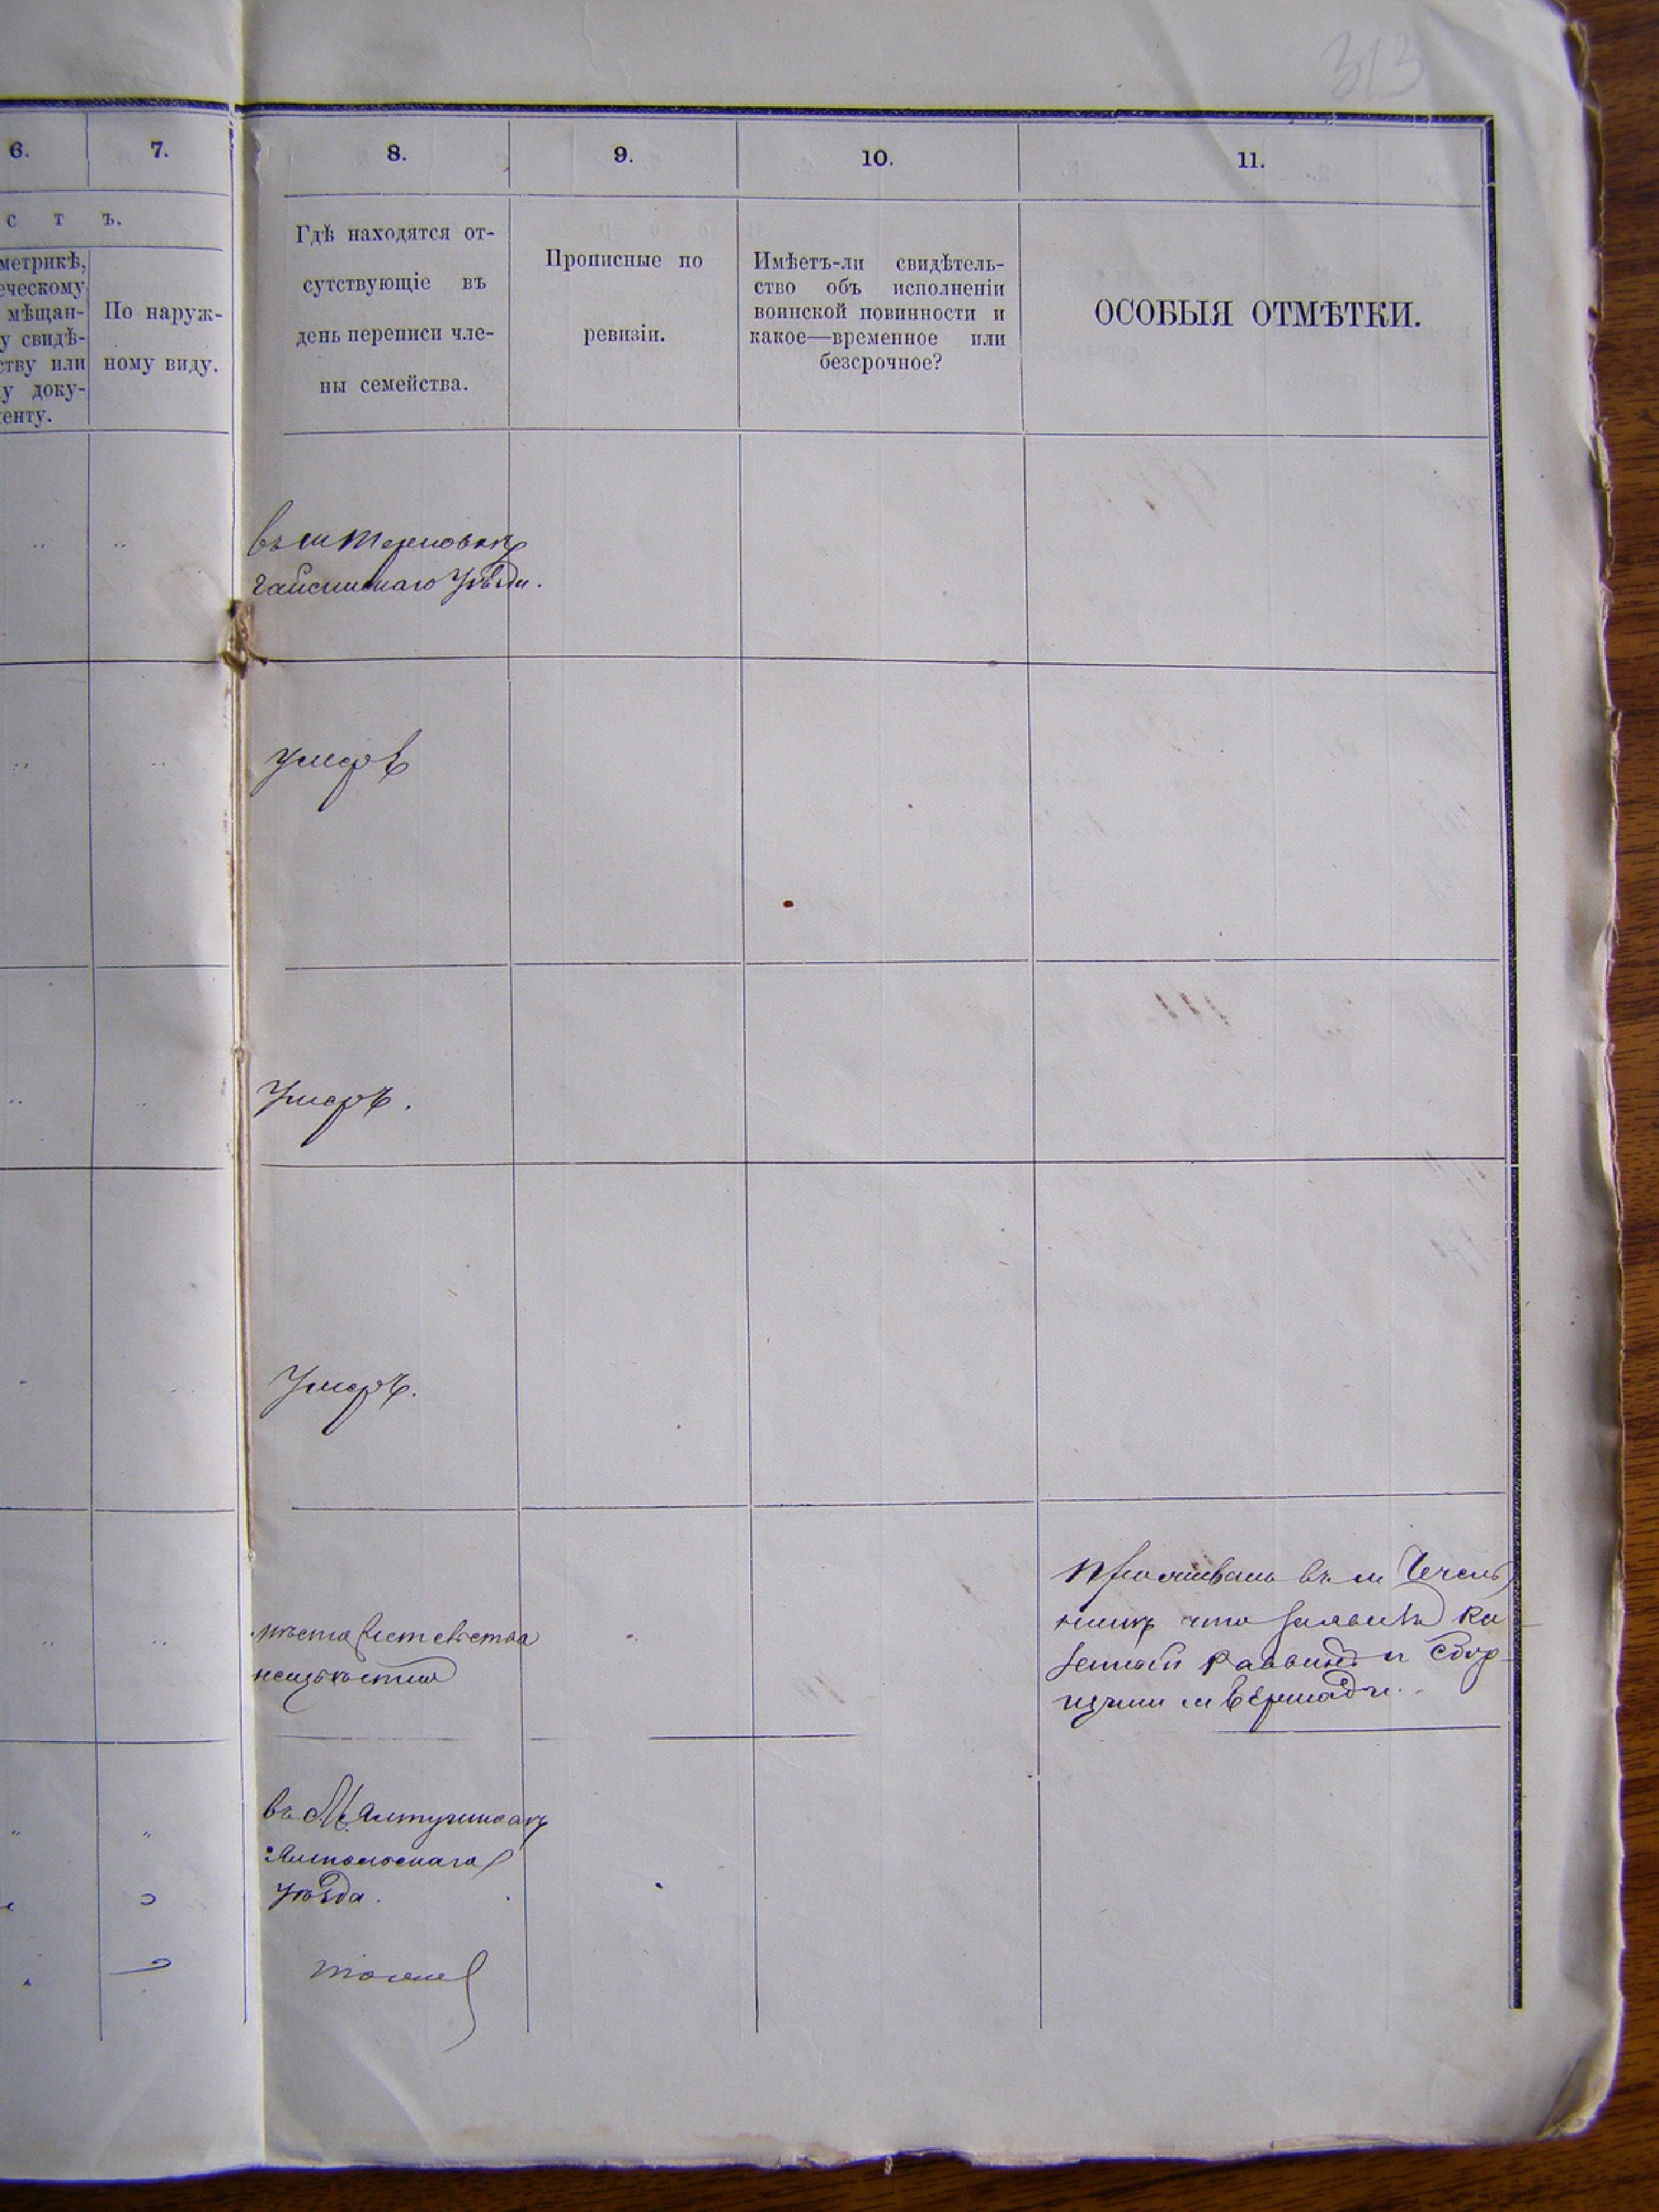 313
6.
7.
8.
9.
10.
11.
с т ъ.
метрикѣ,
еческому
мѣщан-
у свидѣ-
ству или
у доку-
енту.
По наруж-
ному виду.
Гдѣ находятся от-
сутствующіе въ
день переписи чле-
ны семейства.
Прописные по
ревизіи.
Имѣетъ-ли свидѣтель-
ство объ исполненіи
воинской повинности и
какое—временное или
безсрочное?
ОСОБЫЯ ОТМѢТКИ.
въ м Терновкѣ
Гайсинскаго Уѣзда.
умеръ
Умеръ.
Умеръ.
мѣсто
неизвѣстно
въ м Чечель
никѣ что Ка
зенный Раввинъ и Сбор
щики м Бершади.
въ М.
Ямпольскаго
Уѣзда.
тоже